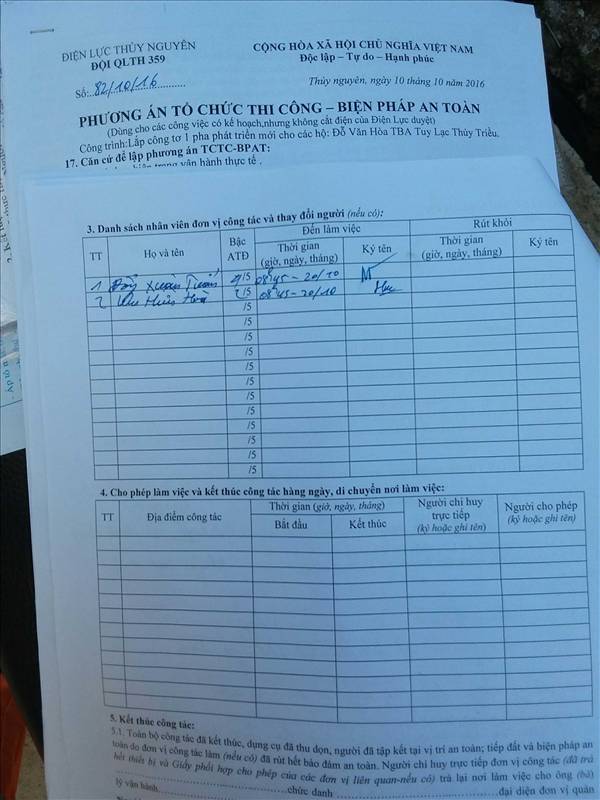 ĐIỆN LỰC THỦY NGUYÊN
ĐỘI QLTH 359
Số: 82/10/16
CỘNG HÒA XÃ HỘI CHỦ NGHĨA VIỆT NAM
Độc lập – Tự do – Hạnh phúc
Thủy nguyên, ngày 10 tháng 10 năm 2016
PHƯƠNG ÁN TỔ CHỨC THI CÔNG – BIỆN PHÁP AN TOÀN
(Dùng cho các công việc có kế hoạch,nhưng không cắt điện của Điện Lực duyệt)
Công trình:Lắp công tơ 1 pha phát triển mới cho các hộ: Đỗ Văn Hòa TBA Tuy Lạc Thủy Triều.
17. Căn cứ để lập phương án TCTC-BPAT:
trạng vận hành thực tế .
3. Danh sách nhân viên đơn vị công tác và thay đổi người (nếu có):
TT Họ và tên Bậc ATĐ Đến làm việc Rút khỏi
Thời gian (giờ, ngày, tháng) Ký tên Thời gian (giờ, ngày, tháng) Ký tên
1 Xuân /5 08h45 - 20/10
2 /5 08h45 - 20/10
/5
/5
/5
/5
/5
/5
/5
/5
/5
/5
/5
/5
4. Cho phép làm việc và kết thúc công tác hàng ngày, di chuyển nơi làm việc:
TT Địa điểm công tác Thời gian (giờ, ngày, tháng) Người chỉ huy trực tiếp (ký hoặc ghi tên) Người cho phép (ký hoặc ghi tên)
Bắt đầu Kết thúc
5. Kết thúc công tác:
5.1. Toàn bộ công tác đã kết thúc, dụng cụ đã thu dọn, người đã tập kết tại vị trí an toàn; tiếp đất và biện pháp an
toàn do đơn vị công tác làm (nếu có) đã rút hết bảo đảm an toàn. Người chỉ huy trực tiếp đơn vị công tác (đã trả
hết thiết bị và Giấy phối hợp cho phép của các đơn vị liên quan-nếu có) trả lại nơi làm việc cho ông (bà)
chức danh đại diện đơn vị quản
lý vận hành